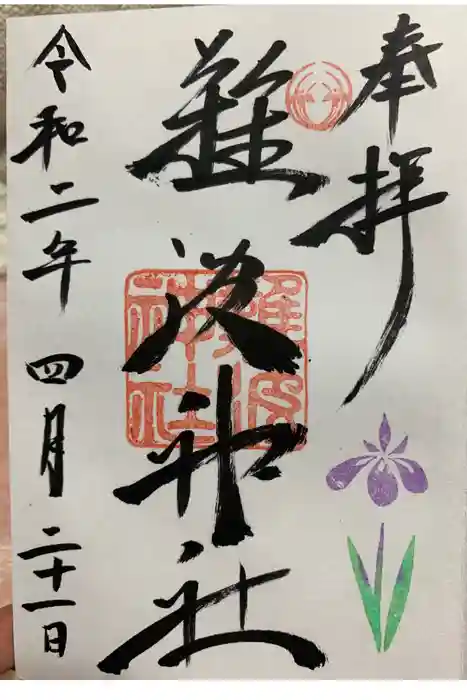 奉拝
難波神社
令和二年 四月二十一日
難波
神社